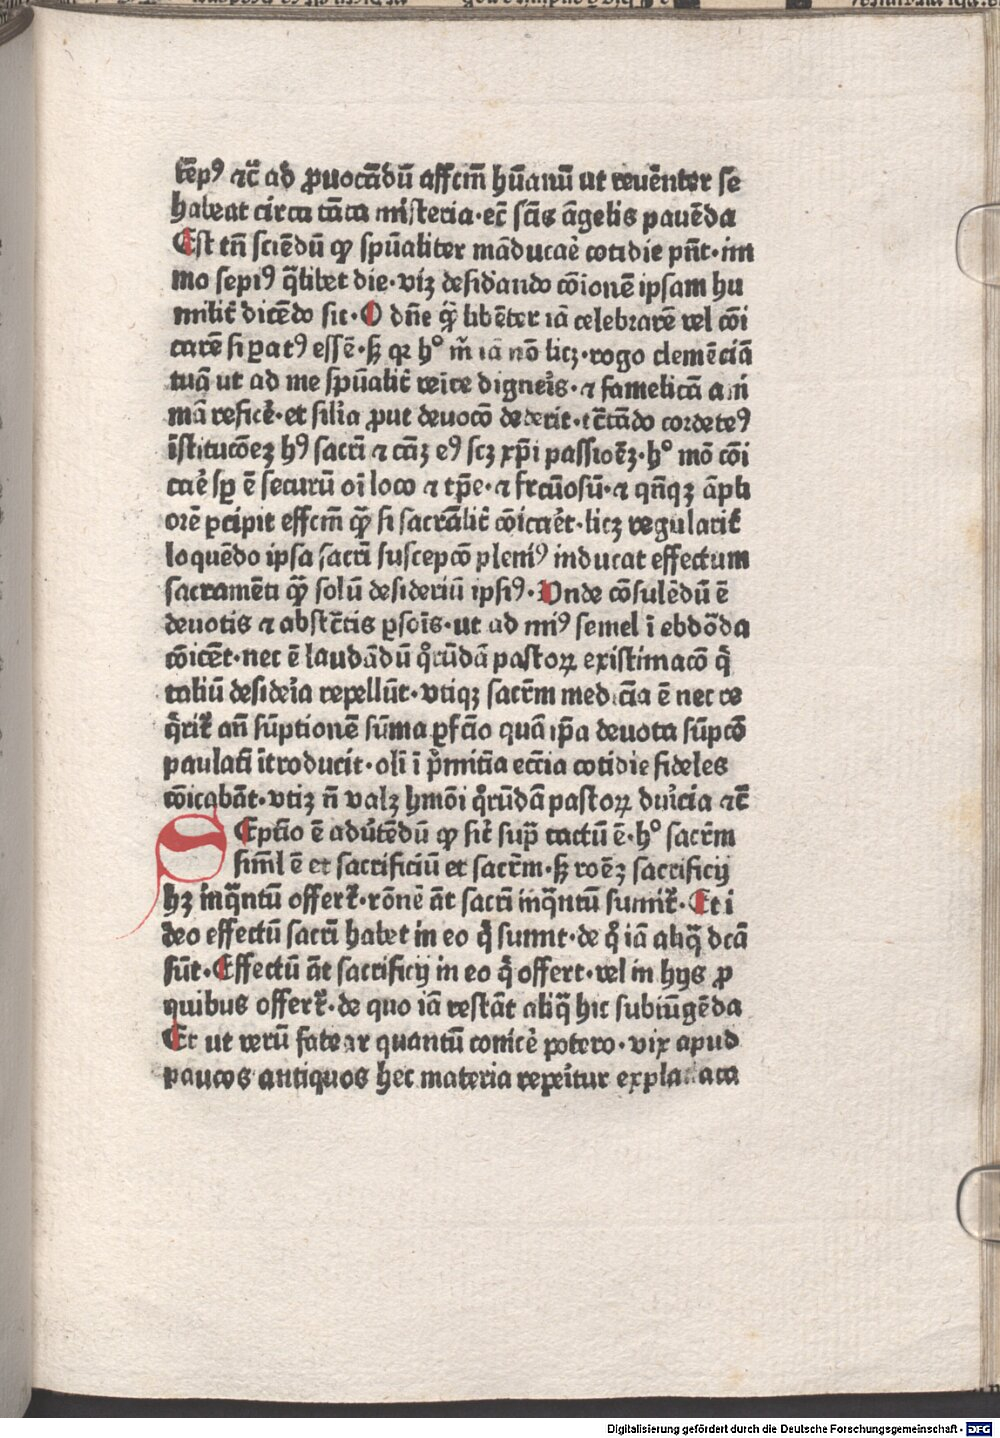 tēpꝰ ⁊c̄ ad ꝓuocādū affcm̄ hūanū ut reuēnter se
habeat circa tāta misteria·ec̄ scīs āgelis pauēda
Est tn̄ sciēdū ꝙ spūaliter māducaē cotidie pn̄t·im
mo sepiꝰ q̄libet die·viꝫ desidāndo cōionē ipsam hu
milit̄ dicēdo sic·O dn̄e qꝫ̄ libēter iā celebrarē vel cōi
carē si ꝑatꝰ essē·sꝫ qꝛ hº m̄ iā nō licꝫ·rogo clemēciā
tuā ut ad me spūalit̄ veīre digneris·⁊ famelicā ani
mā refice·et silīa ꝓut deuocō dederit·tc̄tādo corde teꝰ
īstitucōeꝫ hꝰ sacrī ⁊ cāꝫ eꝰ scꝫ xp̄i passioēꝫ·hº mō cōi
caē sꝑ ē securū oī loco ⁊ tp̄e·⁊ frcūosū·⁊ qn̄qꝫ āpli
orē ꝑcipit effcm̄ qꝫ̄ si sacrālit̄ cōicaēt·licꝫ regularit̄
loquēdo ipsa sacrī suscepcō pleniꝰ inducat effectum
sacramēti qꝫ̄ solū desideriū ipsiꝰ·Unde cōsulēdū ē
deuotis ⁊ abstc̄tis ꝑsoīs·ut ad miꝰ semel ī ebdōda
cōicēt·nec ē laudādū q̊rūdā pastoꝝ existimacō q̄
taliū desideīa repellūt·vtiqꝫ sacrm̄ medicīa ē nec re
q̄rit̄ an̄ sūptionē sūma ꝑfcīo quā ip̄a deuota sūpcō
paulatī ītroducit·olī ī pͥmitīa ecc̄ia cotidie fideles
cōicabāt·vtiꝫ n̄ valꝫ hmōi q̊rūdā pastoꝝ duricia ⁊c̄
SEptīo ē aduͭēdū ꝙ sic̄ supͣ tactū ē·hº sacrm̄
siml̄ ē et sacrificiū et sacrm̄·sꝫ roēꝫ sacrificij
hꝫ inqͣntū offert̄·rōnē āt sacrī inqͣntū sumit̄·Et i
deo effectū sacrī habet in eo qͥ sumit·de qͦ iā aliqͣ dcā
sūt·Effectū āt sacrificij in eo qͥ offert·vel in hijs ꝓ
quibus offert̄·de quo iā restāt aliqͣ hic subiūgēda
Et ut verū fatear quantū conicē potero·vix apud
paucos antiquos hec materia repeītur explanata
Digitalisierung gefördert durch die Deutsche Forschungsgemeinschaft - DFG